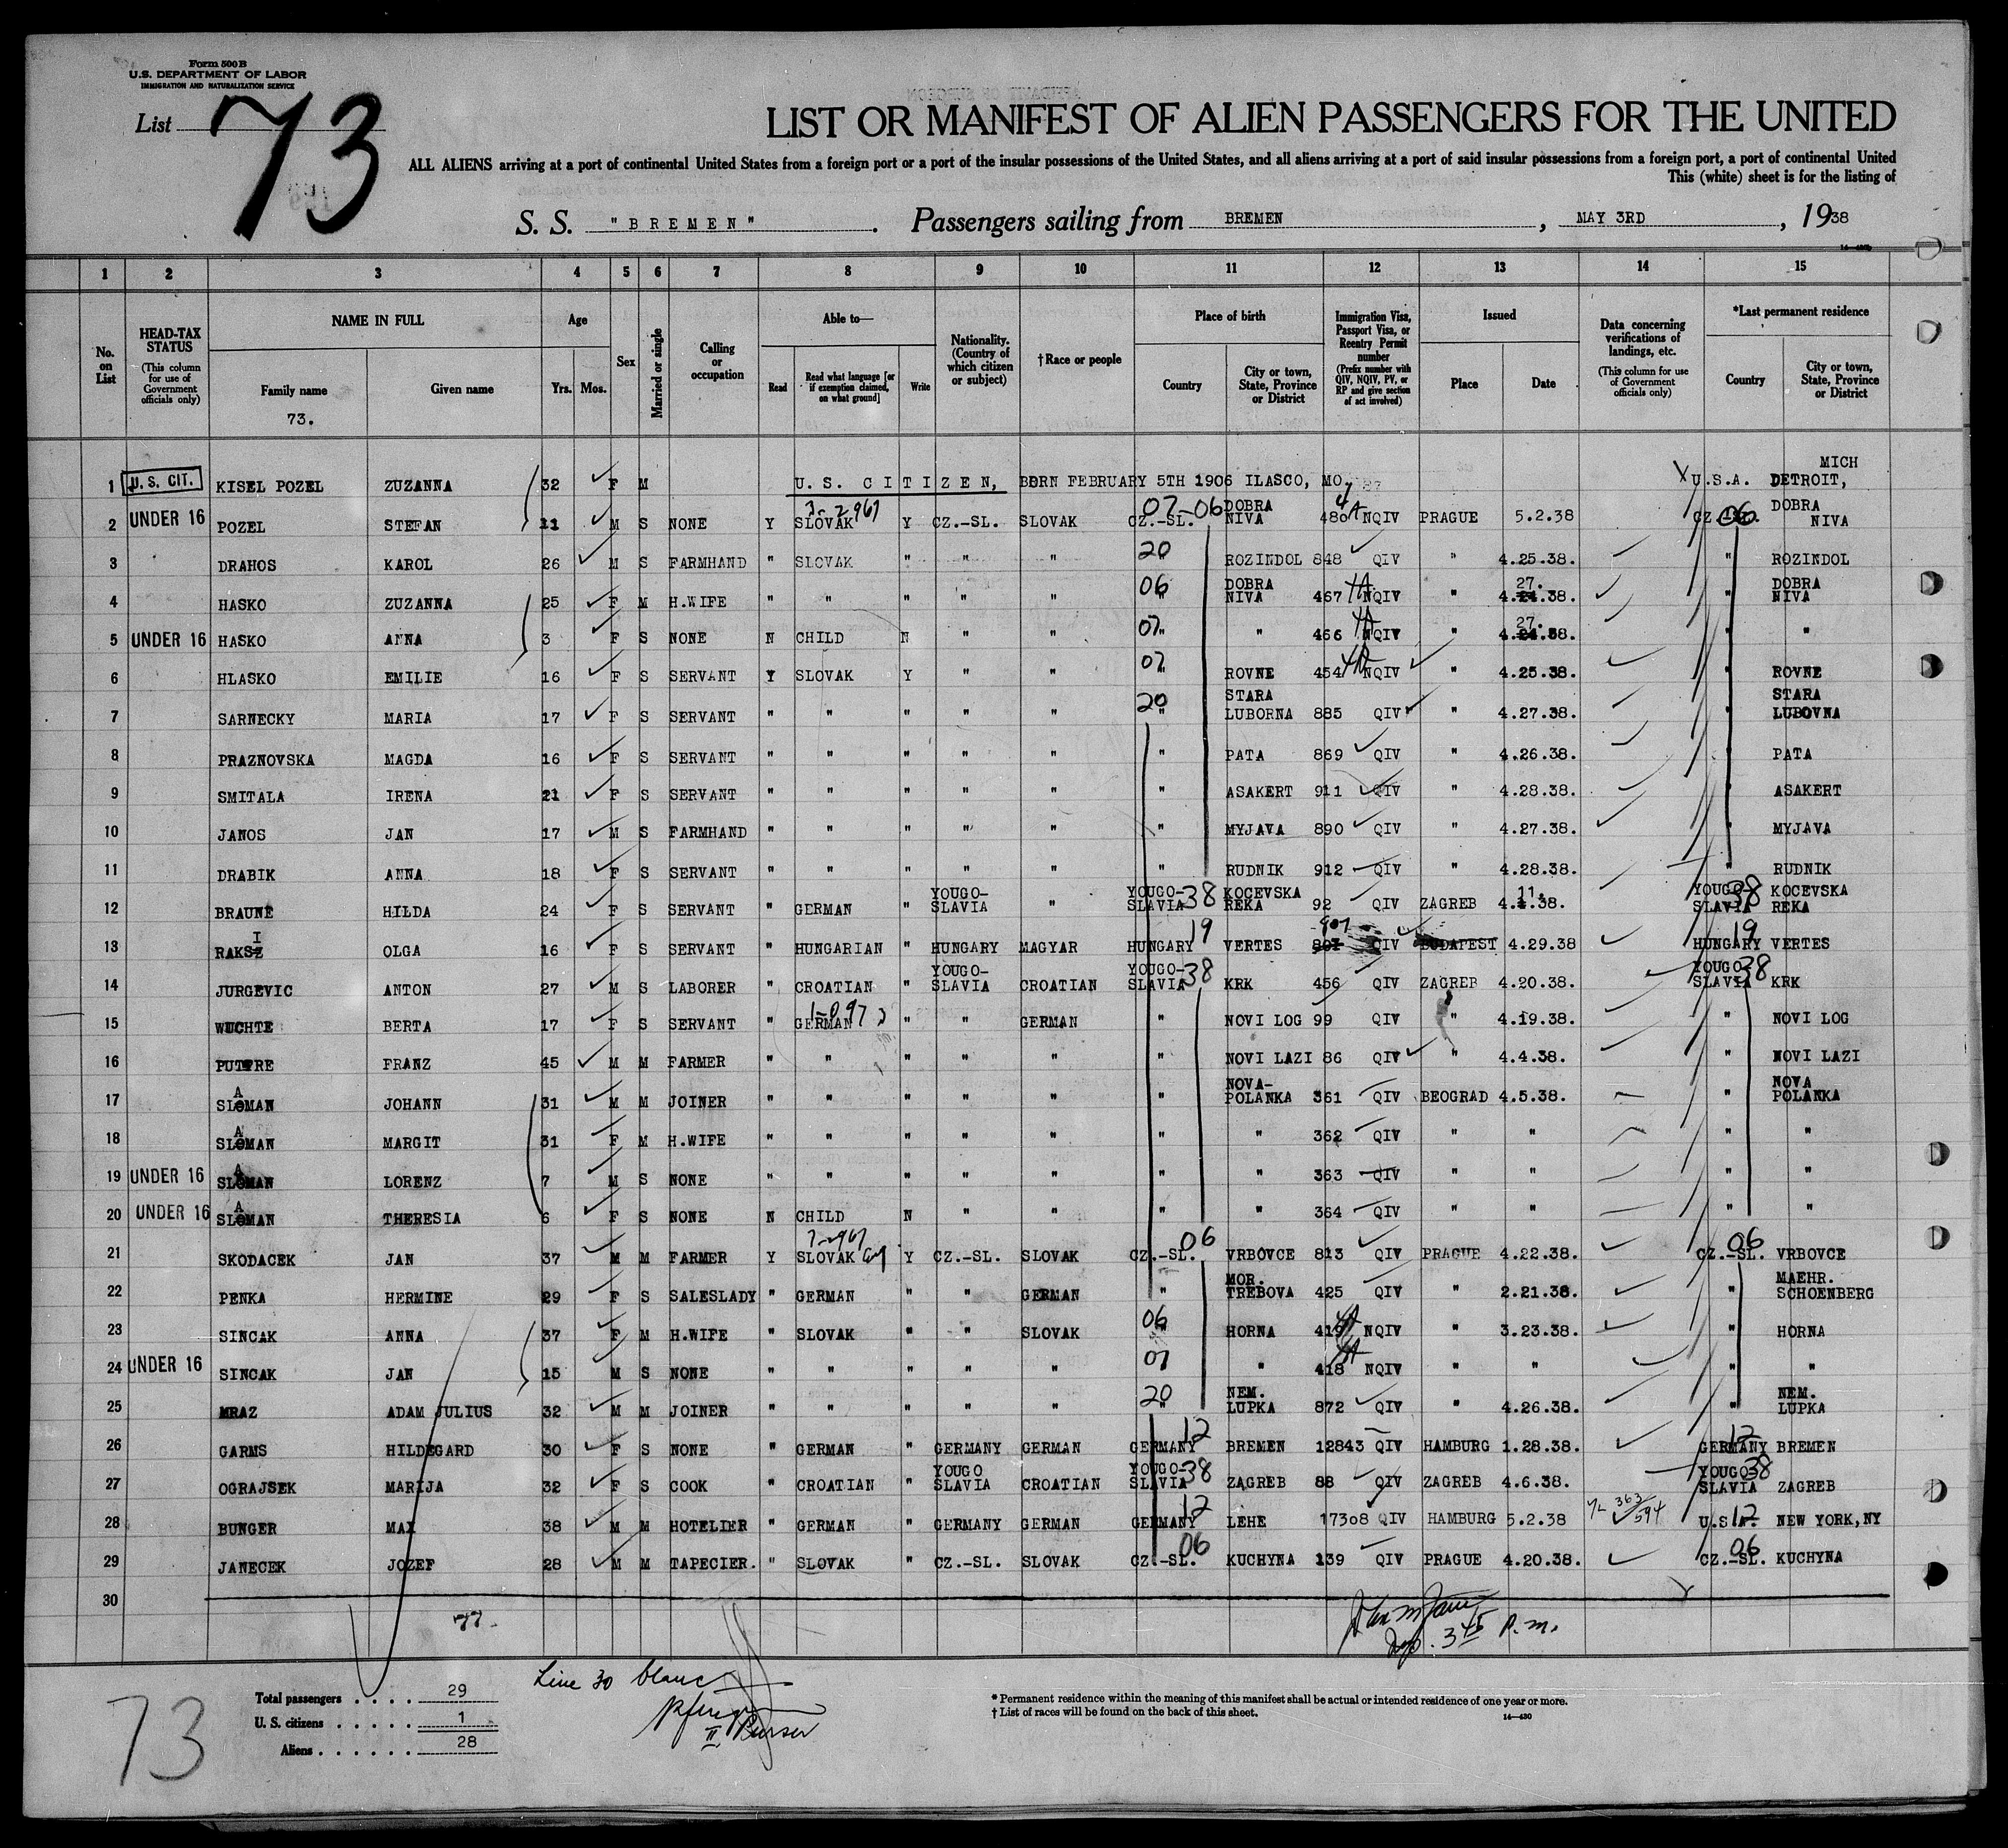 Form 500 B
U.S. DEPARTMENT OF LABOR
IMMIGRATION AND NATURALIZATION SERVICE
List 73
LIST OR MANIFEST OF ALIEN PASSENGERS FOR THE UNITED
ALL ALIENS arriving at a port of continental United States from a foreign port or a port of the insular possessions of the United States, and all aliens arriving at a port of said insular possessions from a foreign port, a port of continental United
This (white) sheet is for the listing of
S. S. "BREMEN". Passengers sailing from BREMEN, MAY 3RD, 1938
1 2 3 4 5 6 7 8 9 10 11 12 13 14 15
No. on List
HEAD-TAX STATUS (This column for use of Government officials only)
NAME IN FULL Family name Given name
73.
Age Yrs. Mos.
Sex
Married or single
Calling or occupation
Able to— Read Read what language [or if exemption claimed, on what ground] Write
Nationality. (Country of which citizen or subject)
†Race or people
Place of birth Country City or town, State, Province or District
Immigration Visa, Passport Visa, or Reentry Permit number (Prefix number with QIV, NQIV, PV, or RP and give section of act involved)
Issued Place Date
Data concerning verifications of landings, etc. (This column for use of Government officials only)
*Last permanent residence Country City or town, State, Province or District
1 U.S. CIT. KISEL POZEL ZUZANNA 32 F M U. S. CITIZEN, BORN FEBRUARY 5TH 1906 ILASCO, MO. U.S.A. DETROIT, MICH
2 UNDER 16 POZEL STEFAN 11 M S NONE Y SLOVAK Y CZ.-SL. SLOVAK CZ.-SL. 07-06 DOBRA NIVA 480 4A NQIV PRAGUE 5.2.38 CZ.-SL. 06 DOBRA NIVA
3 DRAHOS KAROL 26 M S FARMHAND " SLOVAK " " " 20 " ROZINDOL 848 QIV " 4.25.38. " ROZINDOL
4 HASKO ZUZANNA 25 F M H.WIFE " " " " " 06 " DOBRA NIVA 467 4A NQIV " 4.27.38. " DOBRA NIVA
5 UNDER 16 HASKO ANNA 3 F S NONE N CHILD N " " 07 " " 466 4A NQIV " 4.27.38. " "
6 HLASKO EMILIE 16 F S SERVANT Y SLOVAK Y " " 07 " ROVNE 454 4A NQIV " 4.25.38. " ROVNE
7 SARNECKY MARIA 17 F S SERVANT " " " " " 20 " STARA LUBORNA 885 QIV " 4.27.38. " STARA LUBOVNA
8 PRAZNOVSKA MAGDA 16 F S SERVANT " " " " " " PATA 869 QIV " 4.26.38. " PATA
9 SMITALA IRENA 21 F S SERVANT " " " " " " ASAKERT 911 QIV " 4.28.38. " ASAKERT
10 JANOS JAN 17 M S FARMHAND " " " " " " MYJAVA 890 QIV " 4.27.38. " MYJAVA
11 DRABIK ANNA 18 F S SERVANT " " " " " " RUDNIK 912 QIV " 4.28.38. " RUDNIK
12 BRAUNE HILDA 24 F S SERVANT " GERMAN " YOUGO-SLAVIA " YOUGO-SLAVIA 38 KOCEVSKA REKA 92 QIV ZAGREB 4.11.38. YOUGO-SLAVIA 38 KOCEVSKA REKA
13 RAKSI OLGA 16 F S SERVANT " HUNGARIAN " HUNGARY MAGYAR HUNGARY 19 VERTES 907 QIV BUDAPEST 4.29.38 HUNGARY 19 VERTES
14 JURGEVIC ANTON 27 M S LABORER " CROATIAN " YOUGO-SLAVIA CROATIAN YOUGO-SLAVIA 38 KRK 456 QIV ZAGREB 4.20.38. YOUGO-SLAVIA 38 KRK
15 WUCHTE BERTA 17 F S SERVANT " GERMAN " " GERMAN " NOVI LOG 99 QIV " 4.19.38. " NOVI LOG
16 PUTRE FRANZ 45 M M FARMER " " " " " " NOVI LAZI 86 QIV " 4.4.38. " NOVI LAZI
17 SLAMAN JOHANN 31 M M JOINER " " " " " " NOVA-POLANKA 361 QIV BEOGRAD 4.5.38. " NOVA POLANKA
18 SLAMAN MARGIT 31 F M H.WIFE " " " " " " " 362 QIV " " " "
19 UNDER 16 SLAMAN LORENZ 7 M S NONE " " " " " " " 363 QIV " " " "
20 UNDER 16 SLAMAN THERESIA 6 F S NONE N CHILD N " " " " 364 QIV " " " "
21 SKODACEK JAN 37 M M FARMER Y SLOVAK Y CZ.-SL. SLOVAK CZ.-SL. 06 VRBOVCE 813 QIV PRAGUE 4.22.38. CZ.-SL. 06 VRBOVCE
22 PENKA HERMINE 29 F S SALESLADY " GERMAN " " GERMAN " MOR. TREBOVA 425 QIV " 2.21.38. " MAEHR. SCHOENBERG
23 SINCAK ANNA 37 F M H.WIFE " SLOVAK " " SLOVAK 06 " HORNA 4A NQIV " 3.23.38. " HORNA
24 UNDER 16 SINCAK JAN 15 M S NONE " " " " " 07 " 418 4A NQIV " " " "
25 MRAZ ADAM JULIUS 32 M M JOINER " " " " " 20 " NEM. LUPKA 872 QIV " 4.26.38. " NEM. LUPKA
26 GARMS HILDEGARD 30 F S NONE " GERMAN " GERMANY GERMAN GERMANY 12 BREMEN 12843 QIV HAMBURG 1.28.38. GERMANY 12 BREMEN
27 OGRAJSEK MARIJA 32 F S COOK " CROATIAN " YOUGO SLAVIA CROATIAN YOUGO-SLAVIA 38 ZAGREB 88 QIV ZAGREB 4.6.38. YOUGO-SLAVIA 38 ZAGREB
28 BUNGER MAX 38 M M HOTELIER " GERMAN " GERMANY GERMAN GERMANY 12 LEHE 17308 QIV HAMBURG 5.2.38 363/594 U.S.A. 12 NEW YORK, NY
29 JANECEK JOZEF 28 M M TAPECIER. " SLOVAK " CZ.-SL. SLOVAK CZ.-SL. 06 KUCHYNA 139 QIV PRAGUE 4.20.38. CZ.-SL. 06 KUCHYNA
30
77
Insp. 3 45 P.m.
Line 30 blanc
II. Purser
73
Total passengers . . . . 29
U. S. citizens . . . . . 1
Aliens . . . . . . 28
* Permanent residence within the meaning of this manifest shall be actual or intended residence of one year or more.
† List of races will be found on the back of this sheet.
14—430